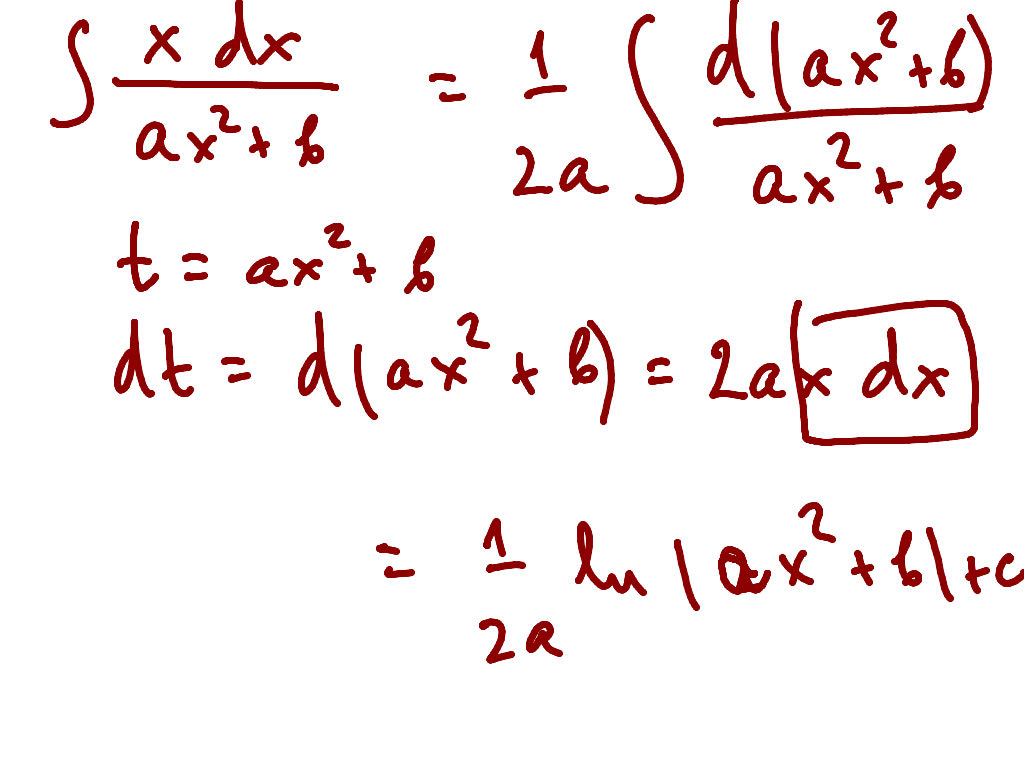 ∫ x dx / (ax² + b) = 1/(2a) ∫ d(ax² + b) / (ax² + b)
t = ax² + b
dt = d(ax² + b) = 2a x dx
= 1/(2a) ln |ax² + b| + c